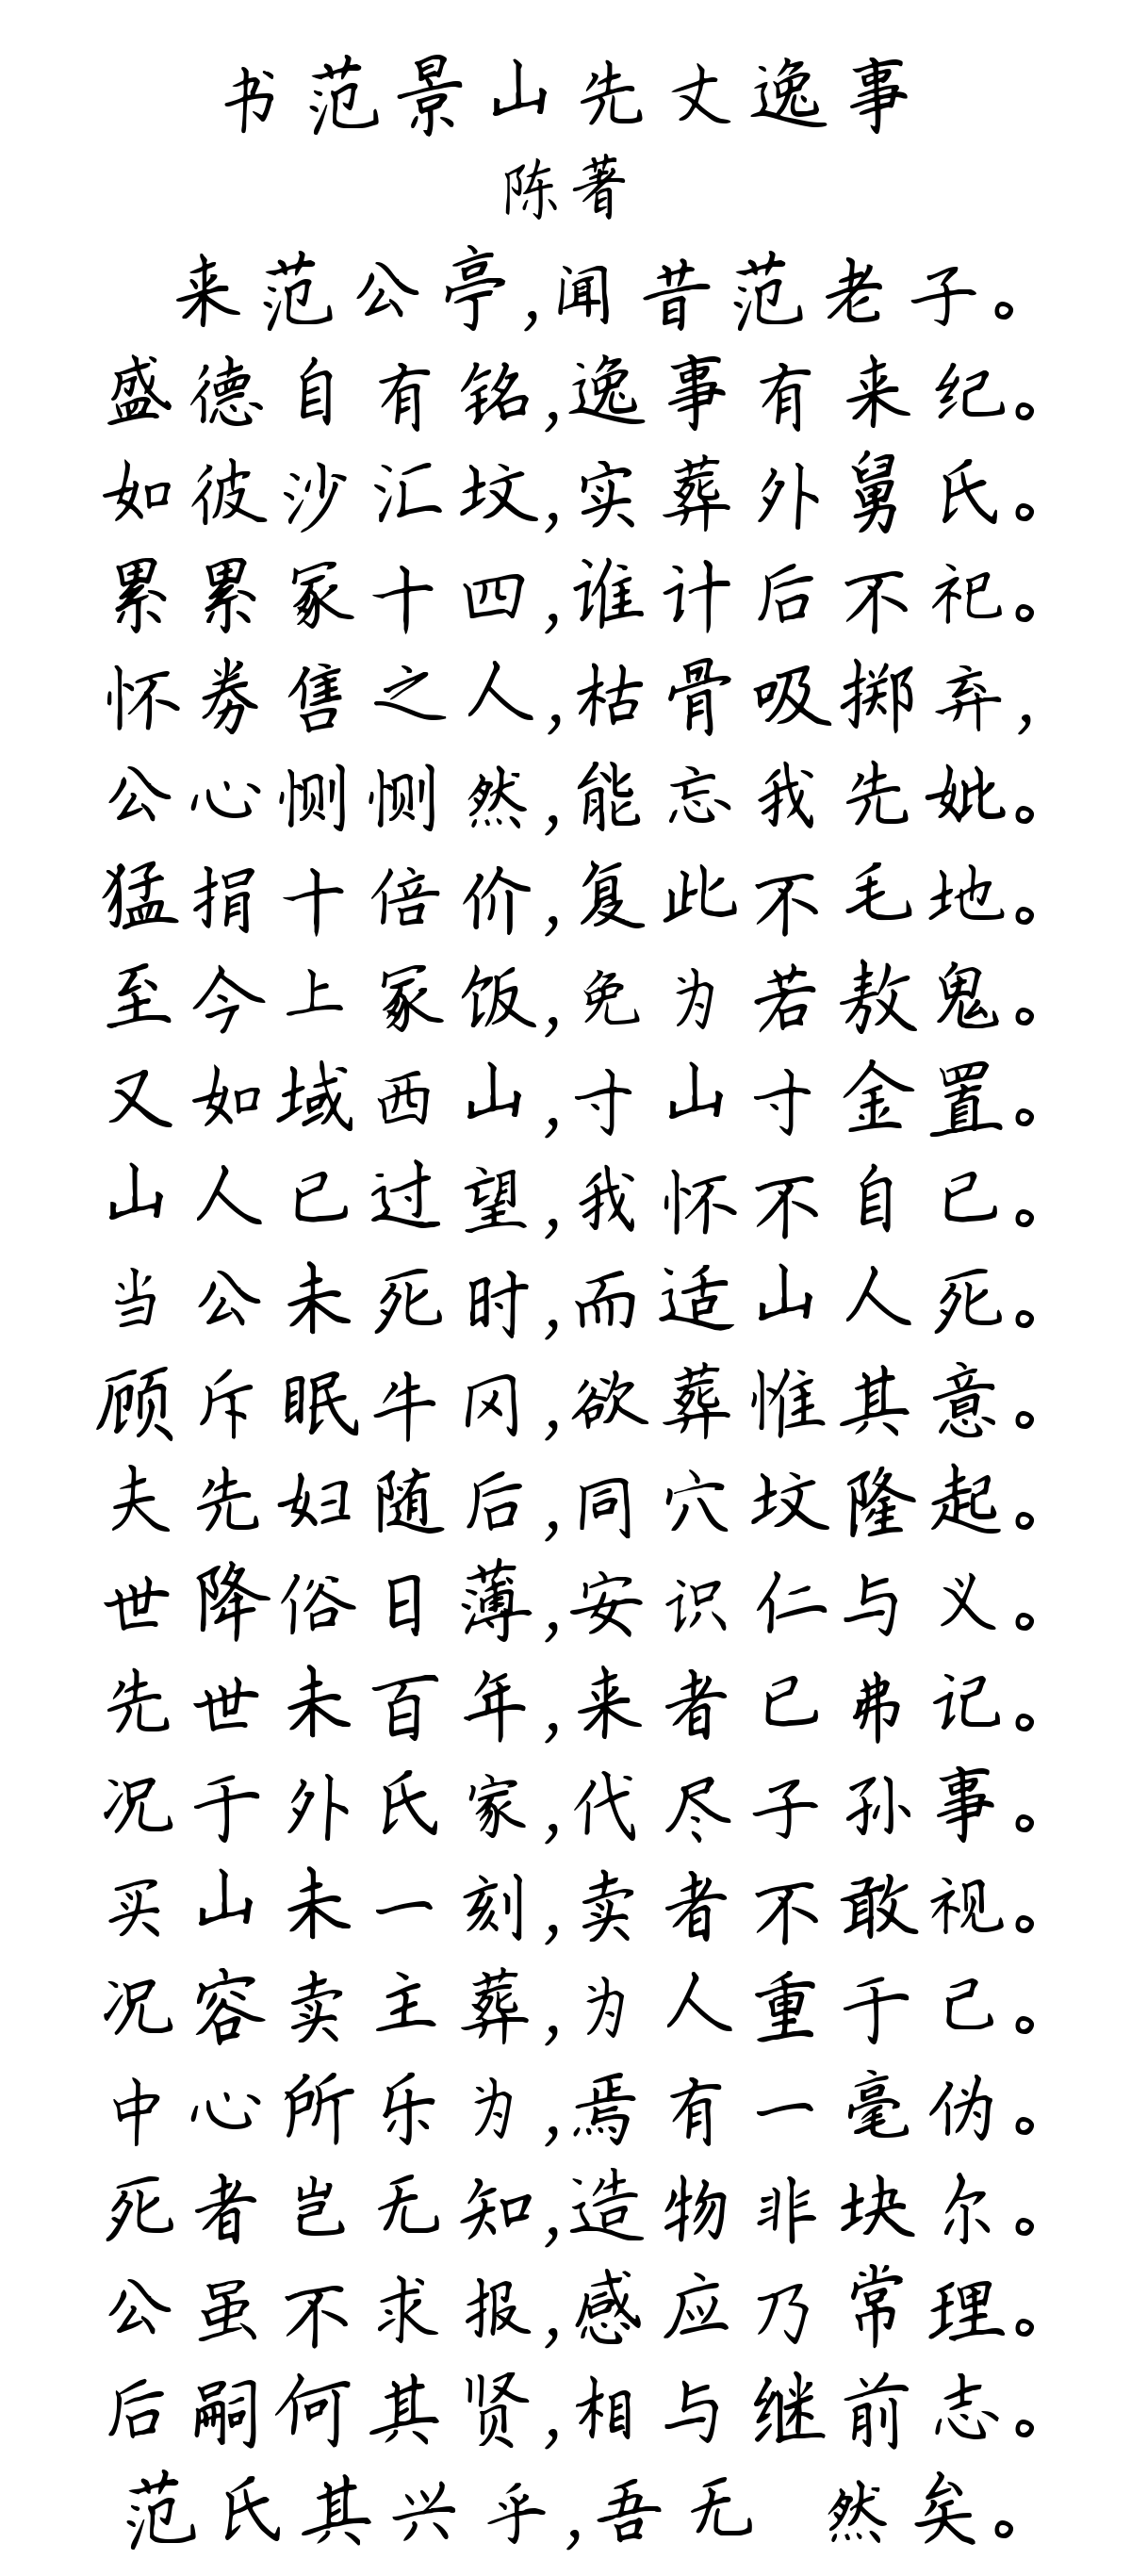 书范景山先丈逸事
陈著
来范公亭,闻昔范老子。
盛德自有铭,逸事有来纪。
如彼沙汇坟,实葬外舅氏。
累累冢十四,谁计后不祀。
怀券售之人,枯骨吸掷弃,
公心恻恻然,能忘我先妣。
猛捐十倍价,复此不毛地。
至今上冢饭,免为若敖鬼。
又如域西山,寸山寸金置。
山人已过望,我怀不自已。
当公未死时,而适山人死。
顾斥眠牛冈,欲葬惟其意。
夫先妇随后,同穴坟隆起。
世降俗日薄,安识仁与义。
先世未百年,来者已弗记。
况于外氏家,代尽子孙事。
买山未一刻,卖者不敢视。
况容卖主葬,为人重于己。
中心所乐为,焉有一毫伪。
死者岂无知,造物非块尔。
公虽不求报,感应乃常理。
后嗣何其贤,相与继前志。
范氏其兴乎,吾无 然矣。